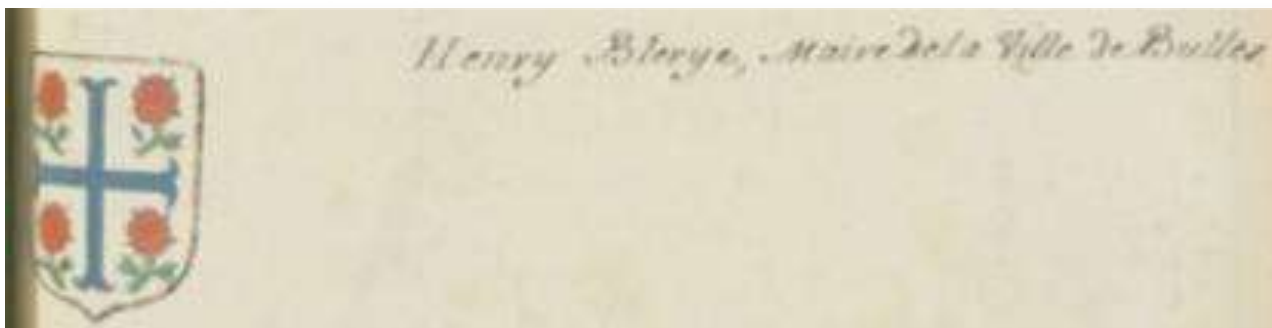 Henry Blerye, Maire de la Ville de Bulles